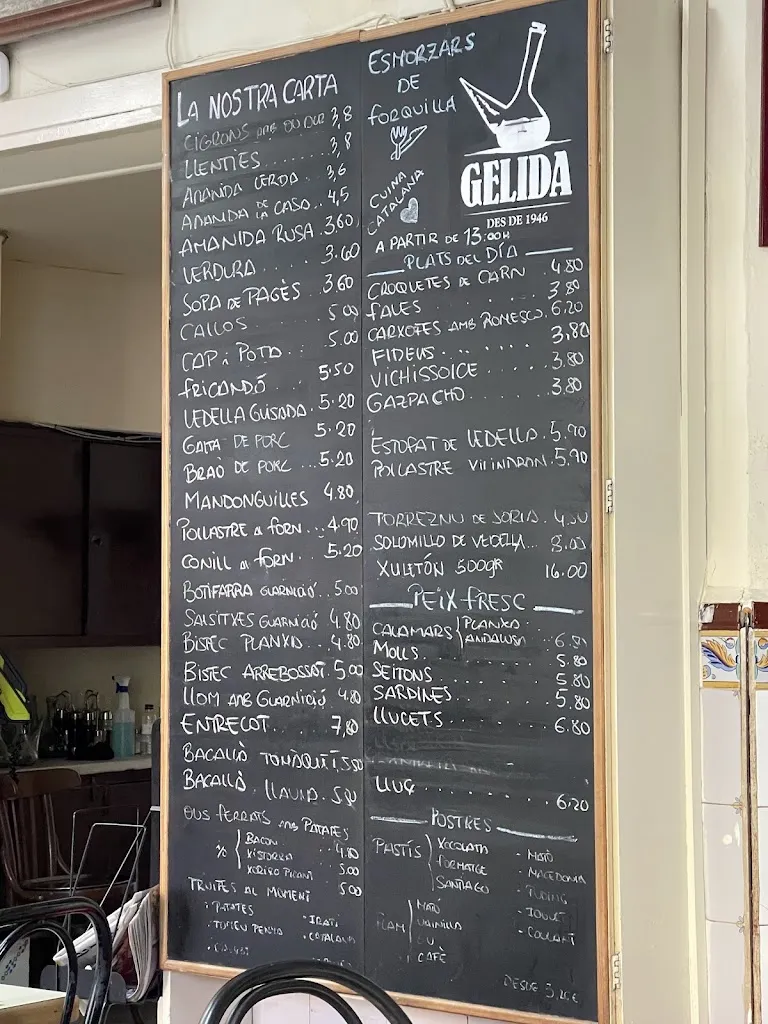 LA NOSTRA CARTA
CIGRONS AMB OU DUR 3,8
LLENTIES ........ 3,8
AMANIDA VERDA ... 3,6
AMANIDA DE LA CASA .. 4,5
AMANIDA RUSA . 3.60
VERDURA .... 3.60
SOPA DE PAGÈS .. 3.60
CALLOS ..... 5.00
CAP i POTA ... 5.00
FRICANDÓ 5.50
VEDELLA GUISADA . 5.20
GALTA DE PORC 5.20
BRAÓ DE PORC ... 5.20
MANDONGUILLES 4.80
POLLASTRE al FORN ... 4.90
CONILL al FORN ... 5.20
BOTIFARRA GUARNICIÓ .. 5.00
SALSITXES GUARNICIÓ 4.80
BISTEC PLANXA .... 4.80
BISTEC ARREBOSSAT 5,00
LLOM AMB GUARNICIÓ 4.80
ENTRECOT ..... 7,80
BACALLÀ
BACALLÀ LLAUNA .
OUS FERRATS AMB PATATES
BACON ..... 4.80
XISTORRA
XORIZO PICANT 5.00
TRUITES AL MOMENT 5.00
· PATATES
· IRATI
· CATALANA
ESMORZARS
DE
FORQUILLA
CUINA
CATALANA
GELIDA
DES DE 1946
A PARTIR DE 13:00H
PLATS DEL DÍA
CROQUETES DE CARN 4.80
FALES ........ 3.80
CARXOFES AMB ROMESCO. 6.20
FIDEUS ..... 3,80
VICHISSOICE ..... 3.80
GAZPACHO ...... 3.80
ESTOFAT DE VEDELLA . 5.90
POLLASTRE 5.90
TORREZNU DE SORIA . 4.50
SOLOMILLO DE VEDELLA ... 8.00
XULETÓN 500gR 16.00
PEIX FRESC
CALAMARS { PLANXA :
ANDALUSA
MOLLS ........... 5.80
SEITONS ......... 5.80
SARDINES ........ 5.80
LLUCETS ......... 6.80
LLUÇ ............ 6.20
POSTRES
PASTÍS
XOCOLATA
FORMATGE
SANTIAGO
- MATÓ
- MACEDONIA
- PUDING
FLAM
MATÓ
VAINILLA
OU
CAFÈ
DESDE